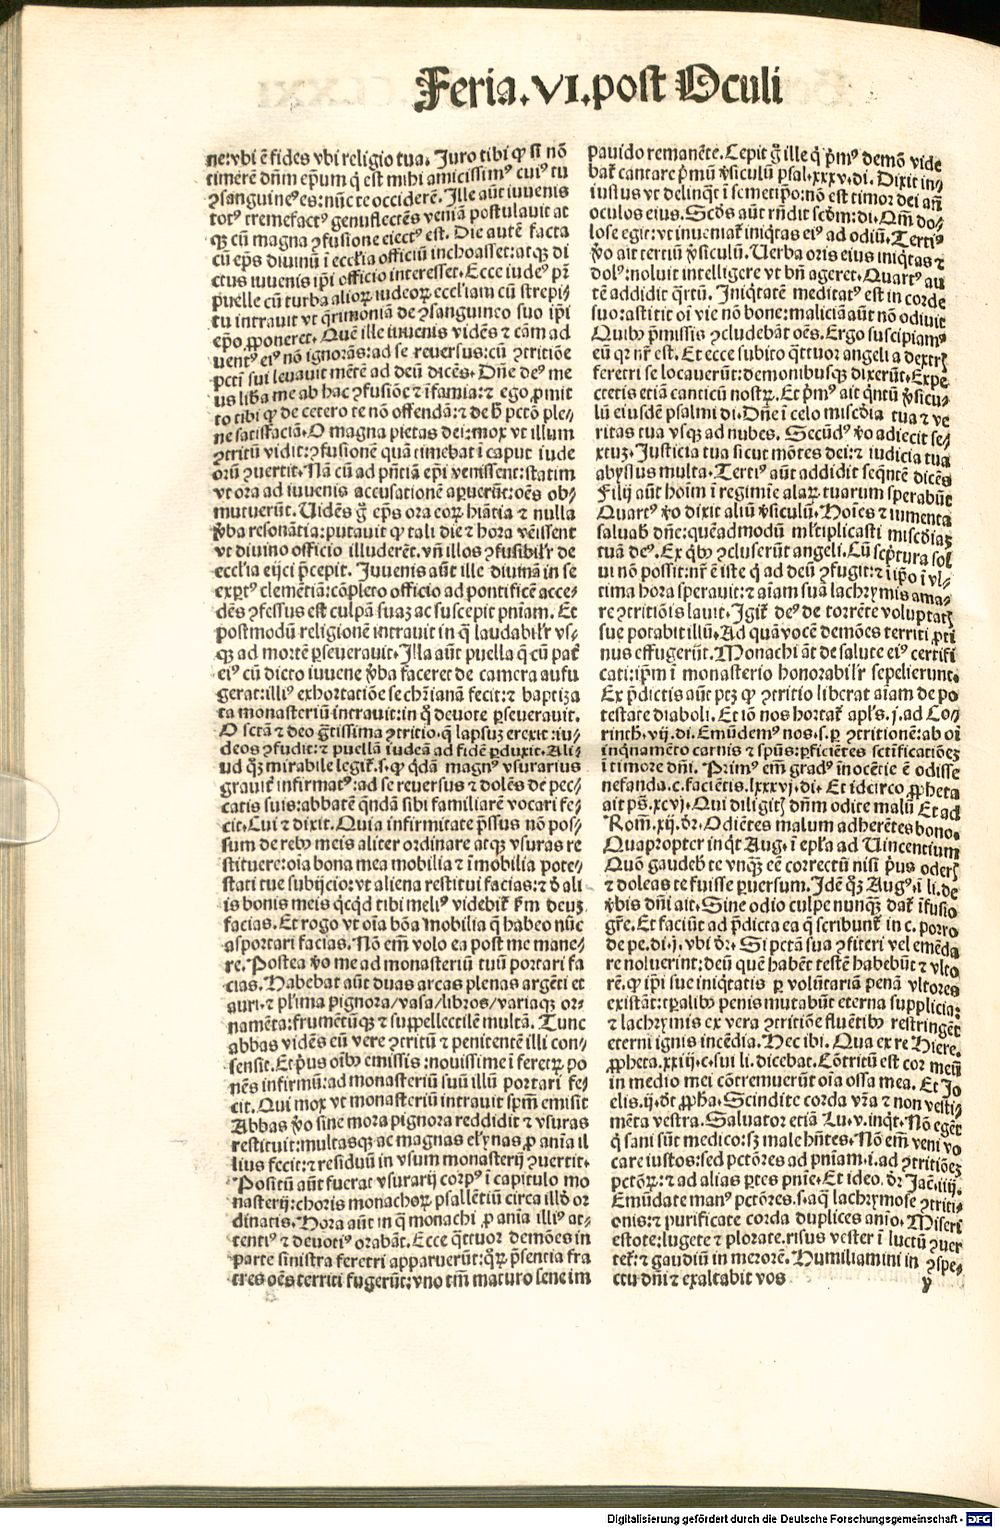 Feria.VI.post Oculi
ne:vbi ē fides vbi religio tua. Juro tibi ꝙ si nō
timerē dn̄m ep̄um q̇ est mihi amicissimꝰ cuiꝰ tu
ꝯsanguineꝰ es:nūc te occiderē. Ille aūt iuuenis
totꝰ tremefactꝰ genuflectēs veniā postulauit at
qꝫ cū magna ꝯfusione eiectꝰ est. Die autē facta
cū ep̄s diuinū ī eccl̄ia officiū inchoasset:atqꝫ di
ctus iuuenis ip̄i officio interesset. Ecce iudeꝰ pr̄
puelle cū turba alioꝝ iudeoꝝ eccl̄iam cū strepi⸗
tu intrauit vt q̄rimoniā de ꝯsanguineo suo ip̄i
ep̄o ꝓponeret. Quē ille iuuenis vidēs ⁊ eam ad
uentꝰ eiꝰ nō ignorās:ad se reuersus:cū ꝯtritiōe
pcti̅ sui leuauit mētē ad deū dicēs. Dn̄e deꝰ me
us lib̄a me ab hac ꝯfusiōe ⁊ īfamia:⁊ ego ꝓmit
to tibi ꝙ de cetero te nō offendā:⁊ de h̄ pctō ple⸗
ne satisfaciā. O magna pietas dei:mox vt illum
ꝯtritū vidit:ꝯfusionē quā timebat ī caput iude
orū ꝯuertit. Nā cū ad pn̄tiā ep̄i venissent:statim
vt ora ad iuuenis accusationē aperuerūt:oēs ob⸗
mutuerūt. Uidēs g̊ ep̄s ora eoꝝ hiātia ⁊ nulla
v̄ba resonātia:putauit ꝙ tali die ⁊ hora vēissent
vt diuino officio illuderēt. vn̄ illos ꝯfusibilr̄ de
eccl̄ia eijci p̄cepit. Juuenis aūt ille diuinā in se
exꝑtꝰ clemētiā:cōpleto officio ad pontificē acce⸗
dēs ꝯfessus est culpā suaꝫ ac suscepit pn̄iam. Et
postmodū religionē intrauit in q̄ laudabilr̄ vs⸗
qꝫ ad mortē ꝑseuerauit. Illa aūt puella q̄ cū pat̄
eiꝰ cū dicto iuuene v̄ba faceret de camera aufu
gerat:illiꝰ exhortatiōe se chr̄ianā fecit:⁊ baptiza
ta monasteriū intrauit:in q̊ deuote ꝑseuerauit.
O sctā ⁊ deo ḡtissima ꝯtritio.q̄ lapsuꝫ erexit:iu⸗
deos ꝯfudit:⁊ puellā iudeā ad fidē ꝑduxit. Ali⸗
ud qꝫ mirabile legit̄.s.ꝙ q̇dā magnꝰ vsurarius
grauit̄ infirmatꝰ:ad se reuersus ⁊ dolēs de pec⸗
catis suis:abbatē quēdā sibi familiarē vocari fe⸗
cit. Cui ⁊ dixit. Quia infirmitate p̄ssus nō pos⸗
sum de rebꝰ meis aliter ordinare atqꝫ vsuras re
stituere:oīa bona mea mobilia ⁊ īmobilia pote⸗
stati tue subijcio:vt aliena restitui facias:⁊ d̄ ali
is bonis meis q̇cq̇d tibi meliꝰ videbit̄ fm̄ deuꝫ
facias. Et rogo vt oīa bōa mobilia q̄ habeo nūc
asportari facias. Nō em̄ volo ea post me mane⸗
re. Postea v̊o me ad monasteriū tuū portari fa
cias. Habebat aūt duas arcas plenas argēti et
auri.⁊ pl̄ima pignora/vasa/libros/variaqꝫ or⸗
namēta:frumētūqꝫ ⁊ suppellectilē multā. Tunc
abbas vidēs eū vere ꝯtritū ⁊ penitentē illi con⸗
sensit. Et p̄us oībꝰ emissis :nouissime ī feretꝝ po
nēs infirmū:ad monasteriū suū illū portari fe⸗
cit. Qui mox vt monasteriū intrauit spm̄ emisit
Abbas v̊o sine mora pignora reddidit ⁊ vsuras
restituit:multasqꝫ ac magnas elynas ꝓ aīa il
lius fecit:⁊ residuū in vsum monasterij ꝯuertit.
Positū aūt fuerat vsurarij corpꝰ ī capitulo mo
nasterij:choris monachoꝝ psallētiū circa illd̄ or
dinatis. Hora aūt in q̄ monachi ꝓ aīa illiꝰ at⸗
tentiꝰ ⁊ deuotiꝰ orabāt. Ecce q̄ttuor demōes in
parte sinistra feretri apparuerūt:q̊ꝝ p̄sentia fra
tres oēs territi fugerūt:vno tm̄ maturo sene im
pauido remanēte. Cepit g̊ ille q̇ p̄mꝰ demō vide
bat̄ cantare p̄mū v̄siculū psal.xxxv.di. Dixit in⸗
iustus vt delinq̄t ī semetip̄o:nō est timor dei añ
oculos eius. Scd̄s aūt rn̄dit scd̄m:di. Qm̄ do⸗
lose egit:vt inueniat̄ iniq̇tas eiꝰ ad odiū. Tertiꝰ
v̊o ait tertiū v̄siculū. Uerba oris eius iniq̇tas ⁊
dolꝰ:noluit intelligere vt bn̄ ageret. Quartꝰ au
tē addidit q̄rtū. Iniq̇tatē meditatꝰ est in corde
suo:astitit oī vie nō bone:maliciā aūt nō odiuit
Quibꝰ p̄missis ꝯcludebāt oēs. Ergo suscipiamꝰ
eū qr nr̄ est. Et ecce subito q̄ttuor angeli a dextrꝭ
feretri se locauerūt:demonibusqꝫ dixerūt. Expe
ctetis etiā canticū nostꝝ. Et p̄mꝰ ait q̇ntū v̄sicu⸗
lū eiusdē psalmi di. Dn̄e ī celo misc̄dia tua ⁊ ve
ritas tua vsqꝫ ad nubes. Secūdꝰ v̊o adiecit se⸗
xtuꝫ. Justicia tua sicut mōtes dei:⁊ iudicia tua
abyssus multa. Tertiꝰ aūt addidit seq̄ntē dicēs
Filij aūt hoīm ī regimīe alaꝝ tuarum sperabūt
Quartꝰ v̊o dixit aliū v̄siculū. Hoīes ⁊ iumenta
saluab̄ dn̄e:quēadmodū ml̄tiplicasti misc̄diaꝫ
tuā deꝰ. Ex q̇bꝰ ꝯcluserūt angeli. Cū sc̄ptura sol
ui nō possit:nr̄ ē iste q̇ ad deū ꝯfugit:⁊ ī ip̄o ī vl⸗
tima hora sperauit:⁊ aīam suā lachrymis ama⸗
re ꝯtritiōis lauit. Igit̄ deꝰ de torrēte voluptatꝭ
sue potabit illū. Ad quā vocē demōes territi ꝓti
nus effugerūt. Monachi āt de salute eiꝰ certifi
cati:ip̄m ī monasterio honorabilr̄ sepelierunt.
Ex p̄dictis aūt ptꝫ ꝙ ꝯtritio liberat aīam de po
testate diaboli. Et iō nos hortat̄ apl̄s.j.ad Co⸗
rinth.vij.di. Emūdemꝰ nos.s.ꝑ ꝯtritionē:ab oī
inq̇namēto carnis ⁊ sp̄us:ꝑficiētes sctīficatiōeꝫ
ī timore dn̄i. Primꝰ em̄ gradꝰ īnocētie ē odisse
nefanda.c.faciētis.lxxxvj.di. Et idcirco ꝓpheta
ait ps̄.xcvj. Qui diligitꝭ dn̄m odite malū Et ad
Rom̄.xij.dr̄. Odiētes malum adherētes bono.
Quapropter inq̇t Aug.ī epl̄a ad Uincentium
Quō gaudeb̄ te vnqꝫ eē correctū nisi p̄us oderꝭ
⁊ doleas te fuisse ꝑuersum. Idē qꝫ Augꝰ.ī li.de
v̄bis dn̄i ait. Sine odio culpe nunqꝫ dat̄ īfusio
gr̄e. Et faciūt ad p̄dicta ea q̄ scribunt̄ in c. porro
de pe.di.j.vbi dr̄. Si pctā sua ꝯfiteri vel emēda
re noluerint:deū quē habēt testē habebūt ⁊ vlto
rē.ꝙ ip̄i sue iniq̇tatis ꝑ volūtariā penā vltores
existāt:tꝑalibꝰ penis mutabūt eterna supplicia:
⁊ lachrymis ex vera ꝯtritiōe fluētibꝰ restringēt
eterni ignis incēdia. Hec ibi. Qua ex re Hiere.
ꝓpheta.xxiij.c.sui li.dicebat. Cōtritū est cor meū
in medio mei cōtremuerūt oīa ossa mea. Et Jo
elis.ij.dt̄ ꝓph̄a. Scindite corda vr̄a ⁊ non vesti⸗
mēta vestra. Saluator etiā Lu.v.inq̇t. Nō egēt
q̇ sani sūt medico:sꝫ male hn̄tes. Nō em̄ veni vo
care iustos:sed pctōres ad pn̄iam.i.ad ꝯtritiōeꝫ
pctōꝝ:⁊ ad alias ꝑtes pn̄ie. Et ideo.dr̄ Jac̄.iiij.
Emūdate manꝰ pctōres.s.aq̄ lachrymose ꝯtriti⸗
onis:⁊ purificate corda duplices aīo. Miseri
estote:lugete ⁊ plorate.risus vester ī luctū ꝯuer
tet̄:⁊ gaudiū in merorē. Humiliamini in ꝯspe⸗
ctu dn̄i ⁊ exaltabit vos
y
Digitalisierung gefördert durch die Deutsche Forschungsgemeinschaft - DFG